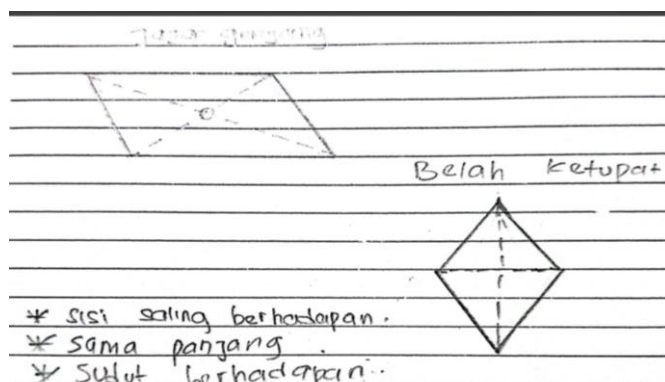 Jajar genjang
Belah Ketupat
* sisi saling berhadapan.
* sama panjang.
* sudut berhadapan..